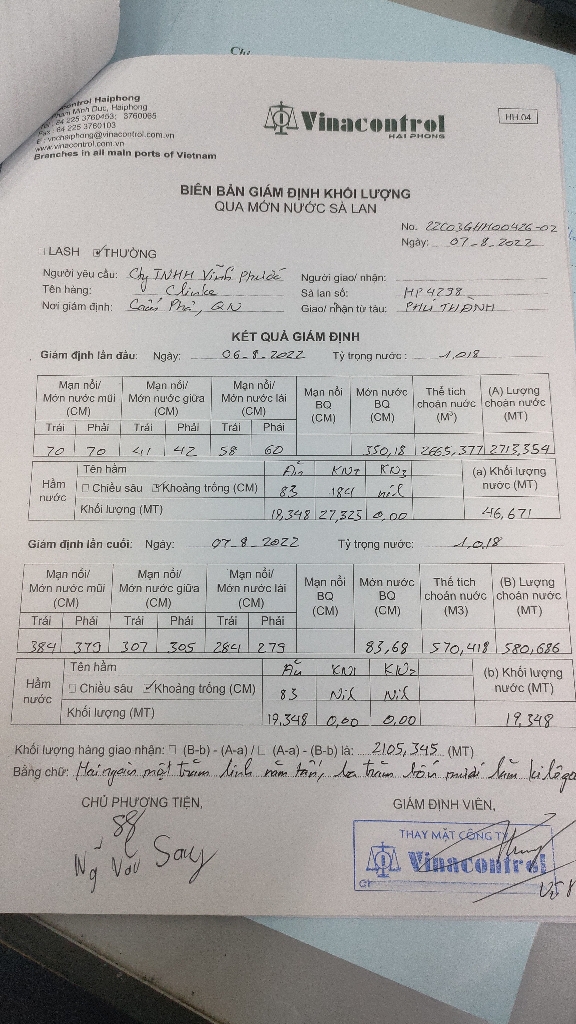 Chi
control Haiphong
Minh Duc, Haiphong
84 225 3760453; 3760065
Fax : 84 225 3760103
E : vnchaiphong@vinacontrol.com.vn
www.vinacontrol.com.vn
Branches in all main ports of Vietnam
Vinacontrol
HAI PHONG
HH.04
BIÊN BẢN GIÁM ĐỊNH KHỐI LƯỢNG
QUA MỚN NƯỚC SÀ LAN
No. 22C03GHH00426-02
Ngày: 07-8-2022
LASH THƯỜNG
Người yêu cầu: Cty TNHH Vĩnh Phước Người giao/ nhận:
Tên hàng: Clinke Sà lan số: HP4238
Nơi giám định: Cẩm Phả, QN Giao/ nhận từ tàu: PHÚ THÀNH
KẾT QUẢ GIÁM ĐỊNH
Giám định lần đầu: Ngày: 06-8-2022 Tỷ trọng nước: 1,018
Mạn nổi/ Mớn nước mũi (CM) Mạn nổi/ Mớn nước giữa (CM) Mạn nổi/ Mớn nước lái (CM) Mạn nổi BQ (CM) Mớn nước BQ (CM) Thể tích choán nước (M³) (A) Lượng choán nước (MT)
Trái Phải Trái Phải Trái Phải
70 70 41 42 58 60 350,18 2665,377 2713,354
Hầm nước Tên hầm KN1 KN2 (a) Khối lượng nước (MT)
Chiều sâu Khoảng trống (CM) 83 184 nil
Khối lượng (MT) 19,348 27,323 0,00 46,671
Giám định lần cuối: Ngày: 07-8-2022 Tỷ trọng nước: 1,018
Mạn nổi/ Mớn nước mũi (CM) Mạn nổi/ Mớn nước giữa (CM) Mạn nổi/ Mớn nước lái (CM) Mạn nổi BQ (CM) Mớn nước BQ (CM) Thể tích choán nước (M3) (B) Lượng choán nước (MT)
Trái Phải Trái Phải Trái Phải
384 379 307 305 284 279 83,68 570,418 580,686
Hầm nước Tên hầm KN1 KN2 (b) Khối lượng nước (MT)
Chiều sâu Khoảng trống (CM) 83 Nil Nil
Khối lượng (MT) 19,348 0,00 0,00 19,348
Khối lượng hàng giao nhận: (B-b) - (A-a) / (A-a) - (B-b) là: 2105,345 (MT)
Bằng chữ: Hai ngàn một trăm linh năm tấn, ba trăm bốn mươi lăm ki lô
CHỦ PHƯƠNG TIỆN, GIÁM ĐỊNH VIÊN,
THAY MẶT CÔNG TY
Vinacontrol
Ng Văn Say